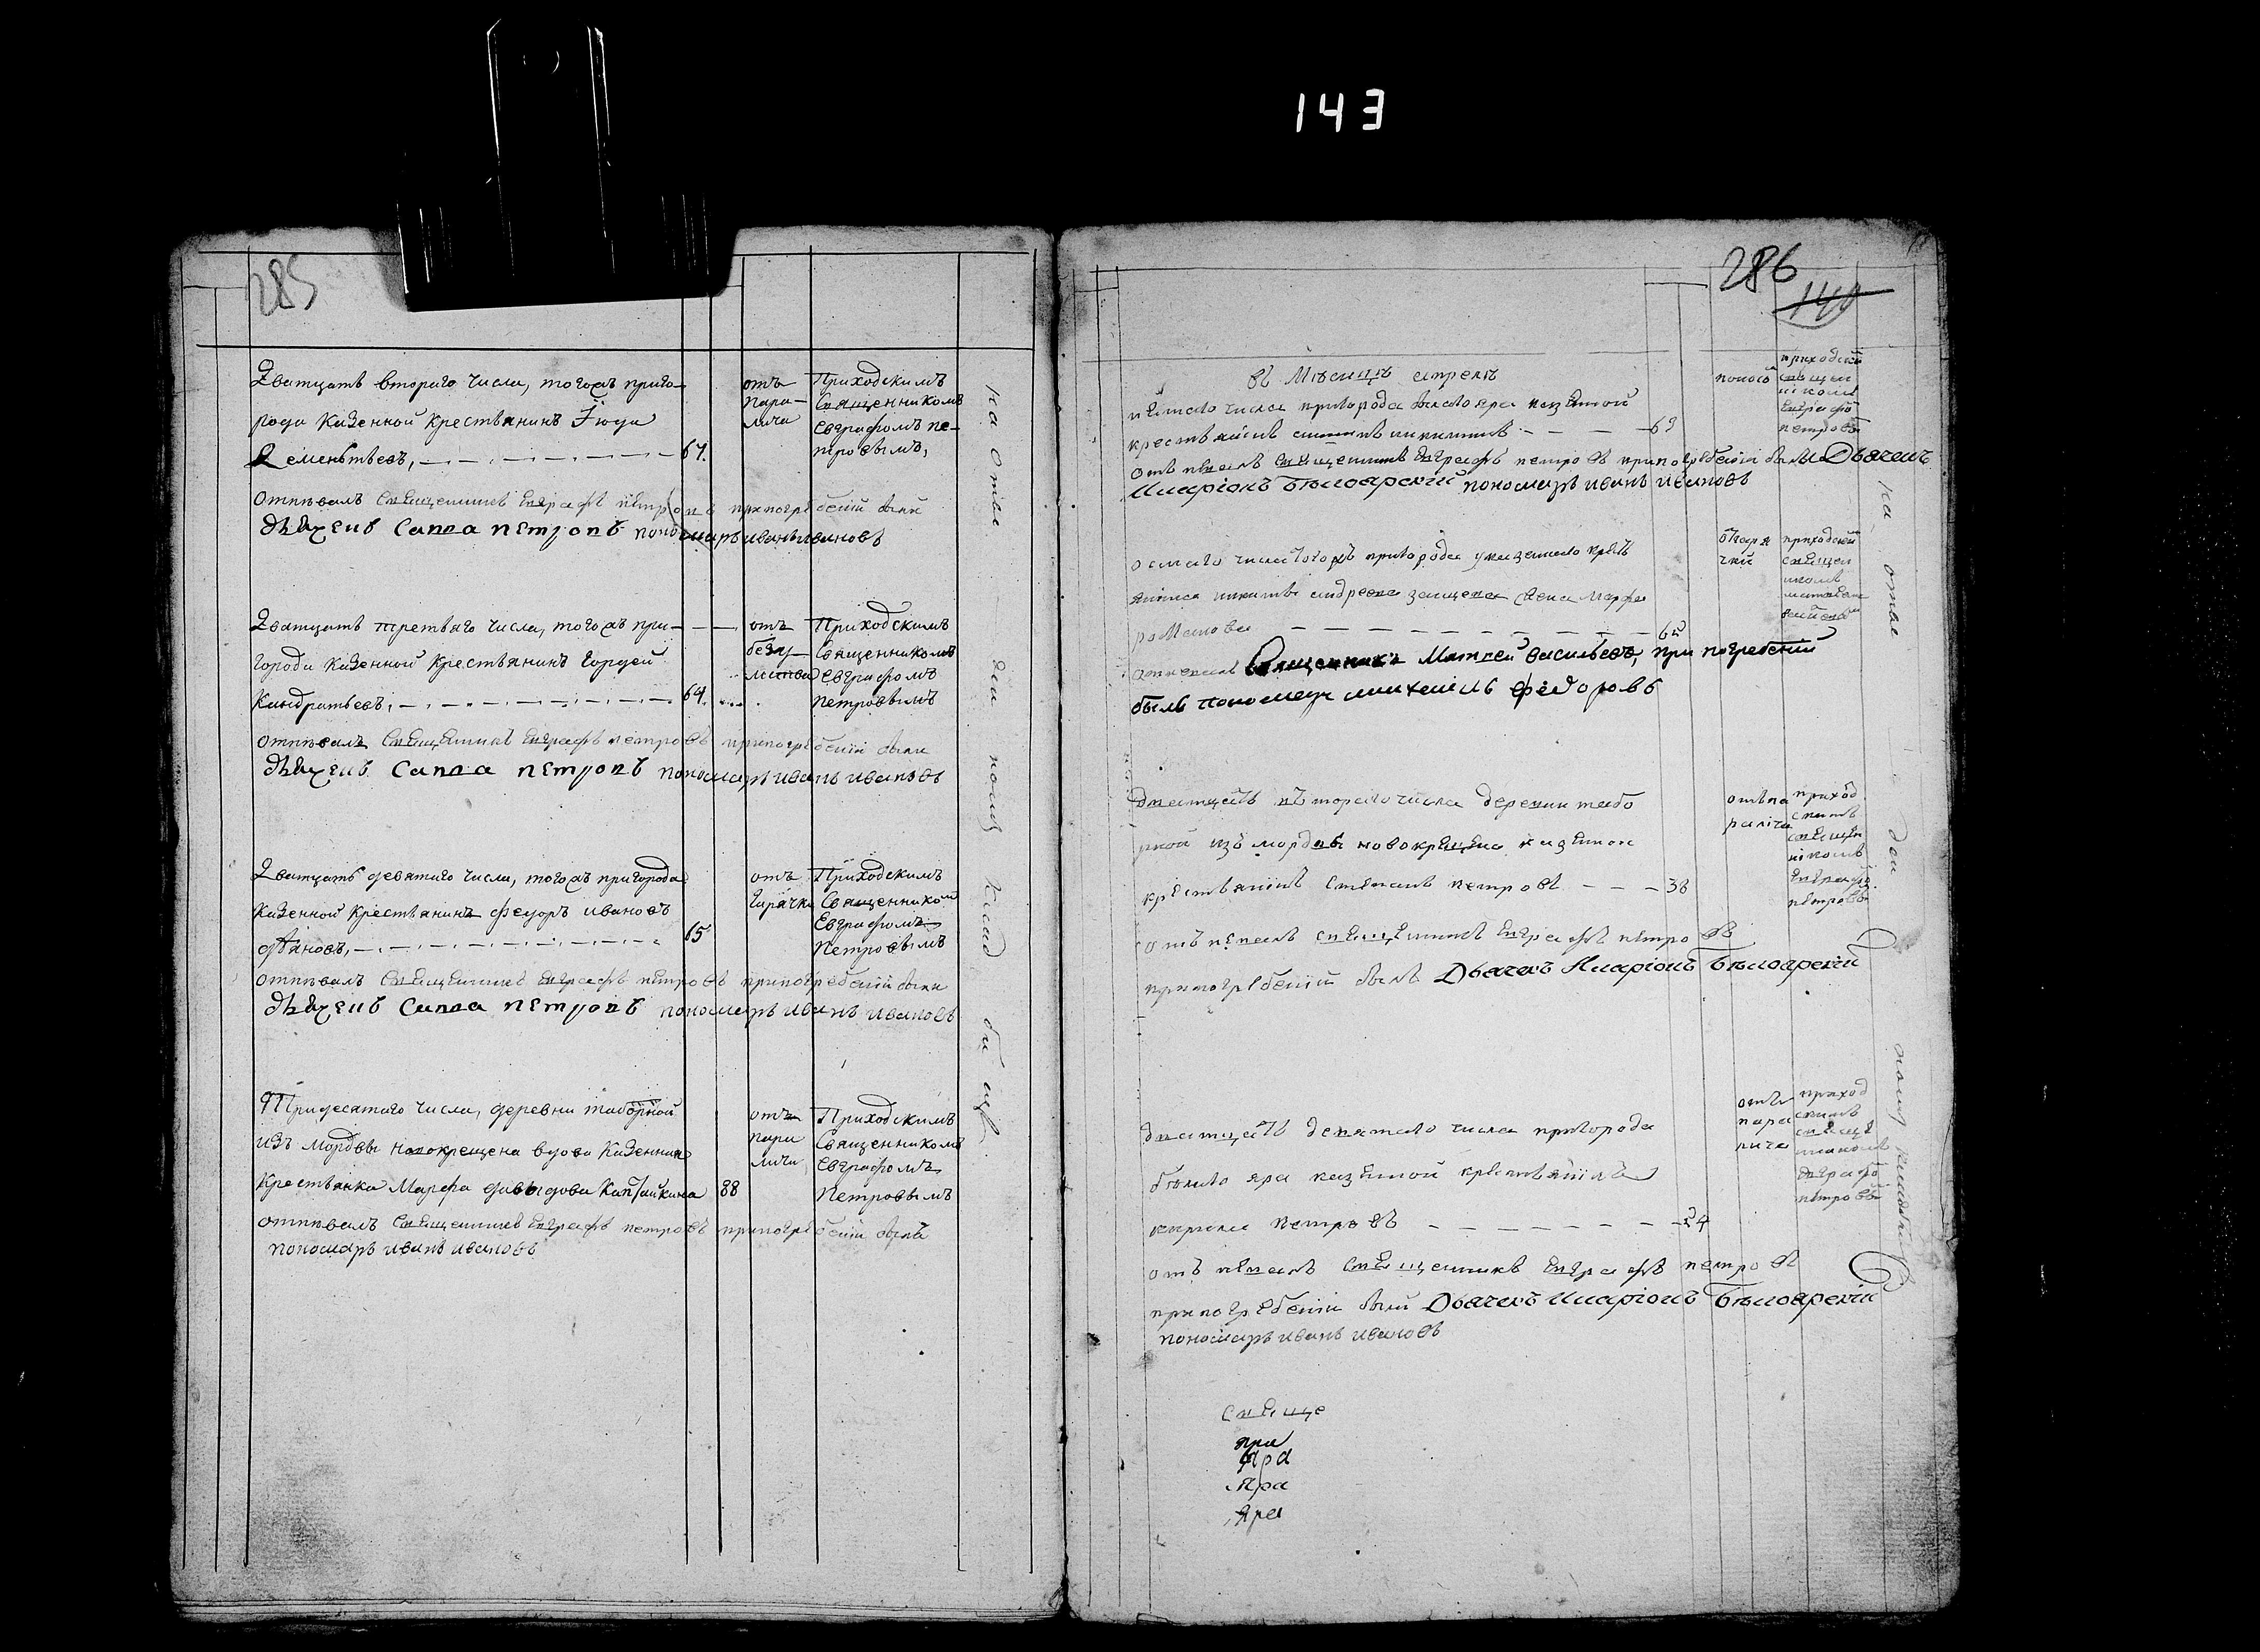 143
285
Дватцать втораго числа, тогожъ приго-
рода Казенной Крестьянинъ Iюда
Дементьевъ, 67.
отъ
пара-
лича
Приходскимъ
Священникомъ
Евграфомъ Пе-
тровымъ,
отпѣвалъ Священникъ Евграфъ петровъ припогребенiи были
дьячекъ Савва петровъ пономарь иванъ ивановъ
Дватцать третьяго числа, тогожъ при-
города Казенной Крестьянинъ Гордей
Кандратьевъ, 64.
отъ
Приходскимъ
Священникомъ
Евграфомъ
Петровымъ
отпѣвалъ Священникъ Евграфъ петровъ припогребенiи были
дьячекъ Савва петровъ пономарь иванъ ивановъ
Дватцать девятаго числа, тогожъ пригорода
Казенной Крестьянинъ Федоръ Ивановъ
65
отъ
Гарячки
Приходскимъ
Священникомъ
Евграфомъ
Петровымъ
отпѣвалъ Священникъ Евграфъ петровъ припогребенiи были
дьячекъ Савва петровъ пономарь иванъ ивановъ
Тридесятаго числа, деревни таборной
изъ мордвы новокрещена вдова Казенная
Крестьянка Марфа давыдова 88
отъ
пара
лича
Приходскимъ
Священникомъ
Евграфомъ
Петровымъ
отпѣвалъ Священникъ Евграфъ петровъ припогребенiи былъ
пономарь иванъ ивановъ
на отве
денномъ
кладбищѣ
286
140
въ Мѣсяцѣ апрелѣ
числа пригорода бѣлого яра казенной
крестьянинъ никитинъ 69
поносо
приходски
священ
никомъ
Евграфо
петровы
отъ певалъ священникъ Евграфъ петровъ припогребенiи былъ Дьячекъ
Иларiонъ Бѣлоярскiй пономарь иванъ ивановъ
осмаго числа тогожъ пригорода у казенного кресть
янина никиты андреева жена марфа
романова 60
отгаря
чки
приходским
священ
никомъ
матвеем
отпевалъ Священникъ Матвей Васильевъ, при погребенiи
былъ пономарь федоровъ
дватцать второго числа деревни табо
рной изъ мордвы новокрещенъ казенной
крестьянинъ степанъ петровъ 38
отъ па
ралича
приход
скимъ
священ
никомъ
Евграфо
петровы
отъ певалъ священникъ Евграфъ петровъ
припогребенiи былъ Дьячекъ Иларiонъ Бѣлоярскiй
дватцать девятаго числа пригорода
бѣлого яра казенной крестьянинъ
петровъ 24
отъ
пара
лича
приход
скимъ
свяще
нникомъ
Евграфо
петровы
отъ певалъ священникъ Евграфъ петровъ
припогребенiи были Дьячекъ Иларiонъ Бѣлоярскiй
пономарь иванъ ивановъ
на отве
свяще
при
яра
яра
яра